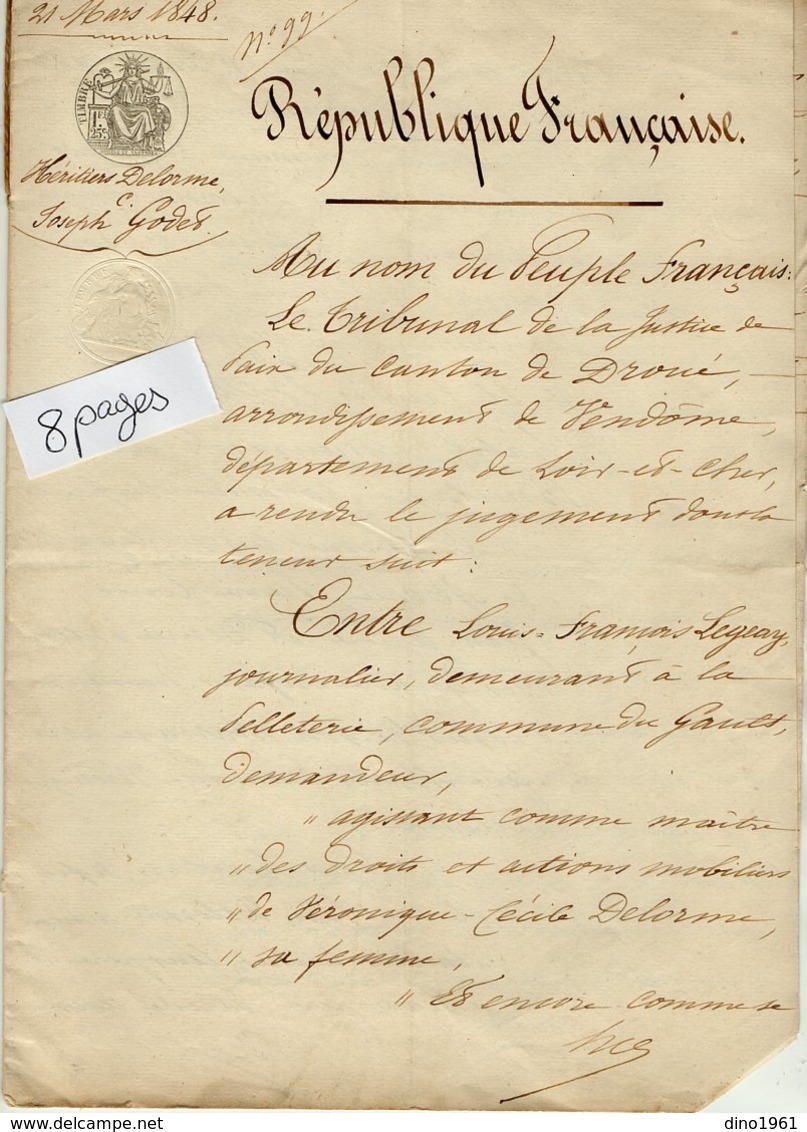 21 Mars 1848.
N° 99.
TIMBRE
1F
25c
République Française.
Héritiers Delorme,
C.
Joseph Godet.
Au nom du Peuple Français:
Le Tribunal de la Justice de
Paix du Canton de Droué,
8 pages
arrondissement de Vendôme,
département de Loir-et-Cher,
a rendu le jugement dont la
teneur suit:
Entre Louis-François Legeay,
journalier, demeurant à la
Pelleterie, commune du Gault,
demandeur,
" agissant comme maître
" des droits et actions mobiliers
" de Véronique-Cécile Delorme,
" sa femme,
" Et encore comme se
dino1961